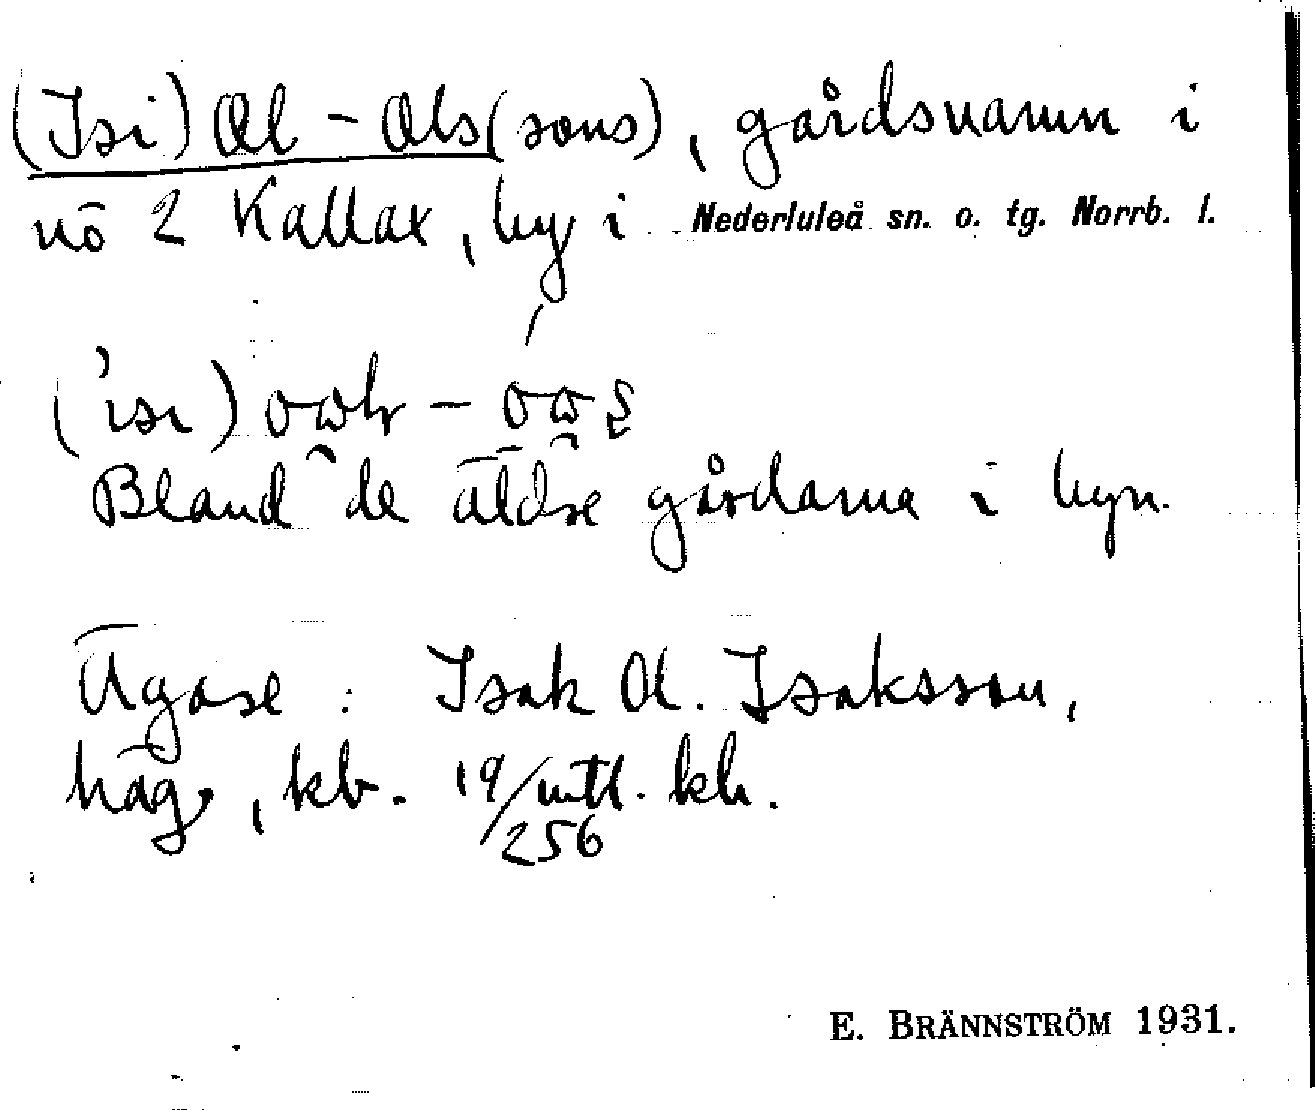 (Isi) Ol - Ols(sons), gårdsnamn i
nō 2 Kallax, by i Nederluleå sn. o. tg. Norrb. l.
Bland de äldre gårdarna i byn.
Ägare: Isak Ol. Isaksson,
häg, kb. 19/256 mtl. kh.
E. BRÄNNSTRÖM 1931.